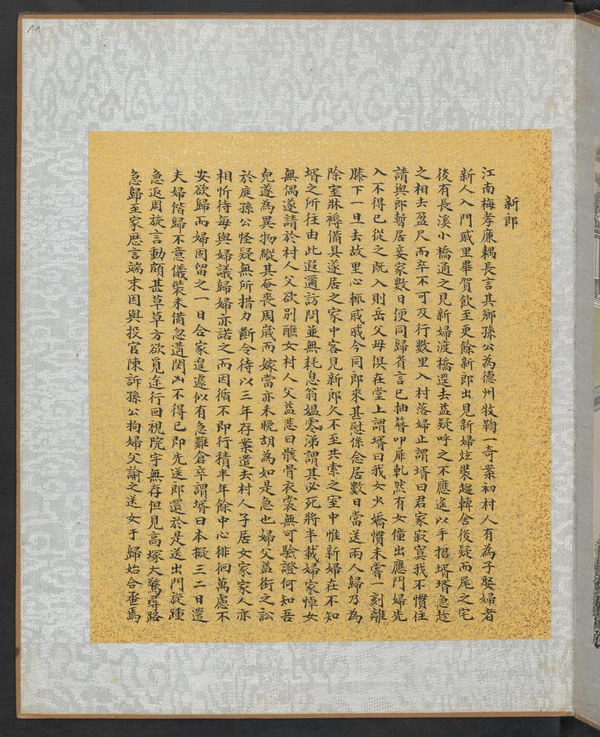 新郎
江南梅孝廉耦長言其鄉孫公為德州牧鞫一奇案初村人有為子娶婦者
新人入門戚里畢賀飲至更餘新郎出見新婦炫裝趨轉舍後疑而尾之宅
後有長溪小橋通之見新婦渡橋逕去益疑呼之不應遙以手招壻壻急趁
之相去盈尺而卒不可及行數里入村落婦止謂壻曰君家寂寞我不慣住
請與郎暫居妾家數日便同歸省言已抽簪叩扉軋然有女僮出應門婦先
入不得已從之既入則岳父母俱在堂上謂壻曰我女少嬌慣未嘗一刻離
膝下一旦去故里心輒戚戚今同郎來甚慰係念居數日當送兩人歸乃為
除室牀褥備具遂居之家中客見新郎久不至共索之室中惟新婦在不知
壻之所往由此遐邇訪問並無耗息翁媼零涕謂其必死將半載婦家悼女
無偶遂請於村人父欲別醮女村人父益悲曰骸骨衣裳無可驗證何知吾
兒遂為異物縱其奄喪周歲而嫁當亦未晚胡為如是急也婦父益銜之訟
於庭孫公怪疑無所措力斷令待以三年存案遣去村人子居女家家人亦
相忻待每與婦議歸婦亦諾之而因循不即行積半年餘中心徘徊萬慮不
安欲歸而婦固留之一日合家遑遽似有急難倉卒謂壻曰本擬三二日遣
夫婦偕歸不意儀裝未備忽遘閔凶不得已即先送郎還於是送出門旋踵
急返周旋言動頗甚草草方欲覓途行回視院宇無存但見高塚大驚尋路
急歸至家歷言端末因與投官陳訴孫公拘婦父諭之送女于歸始合巹焉